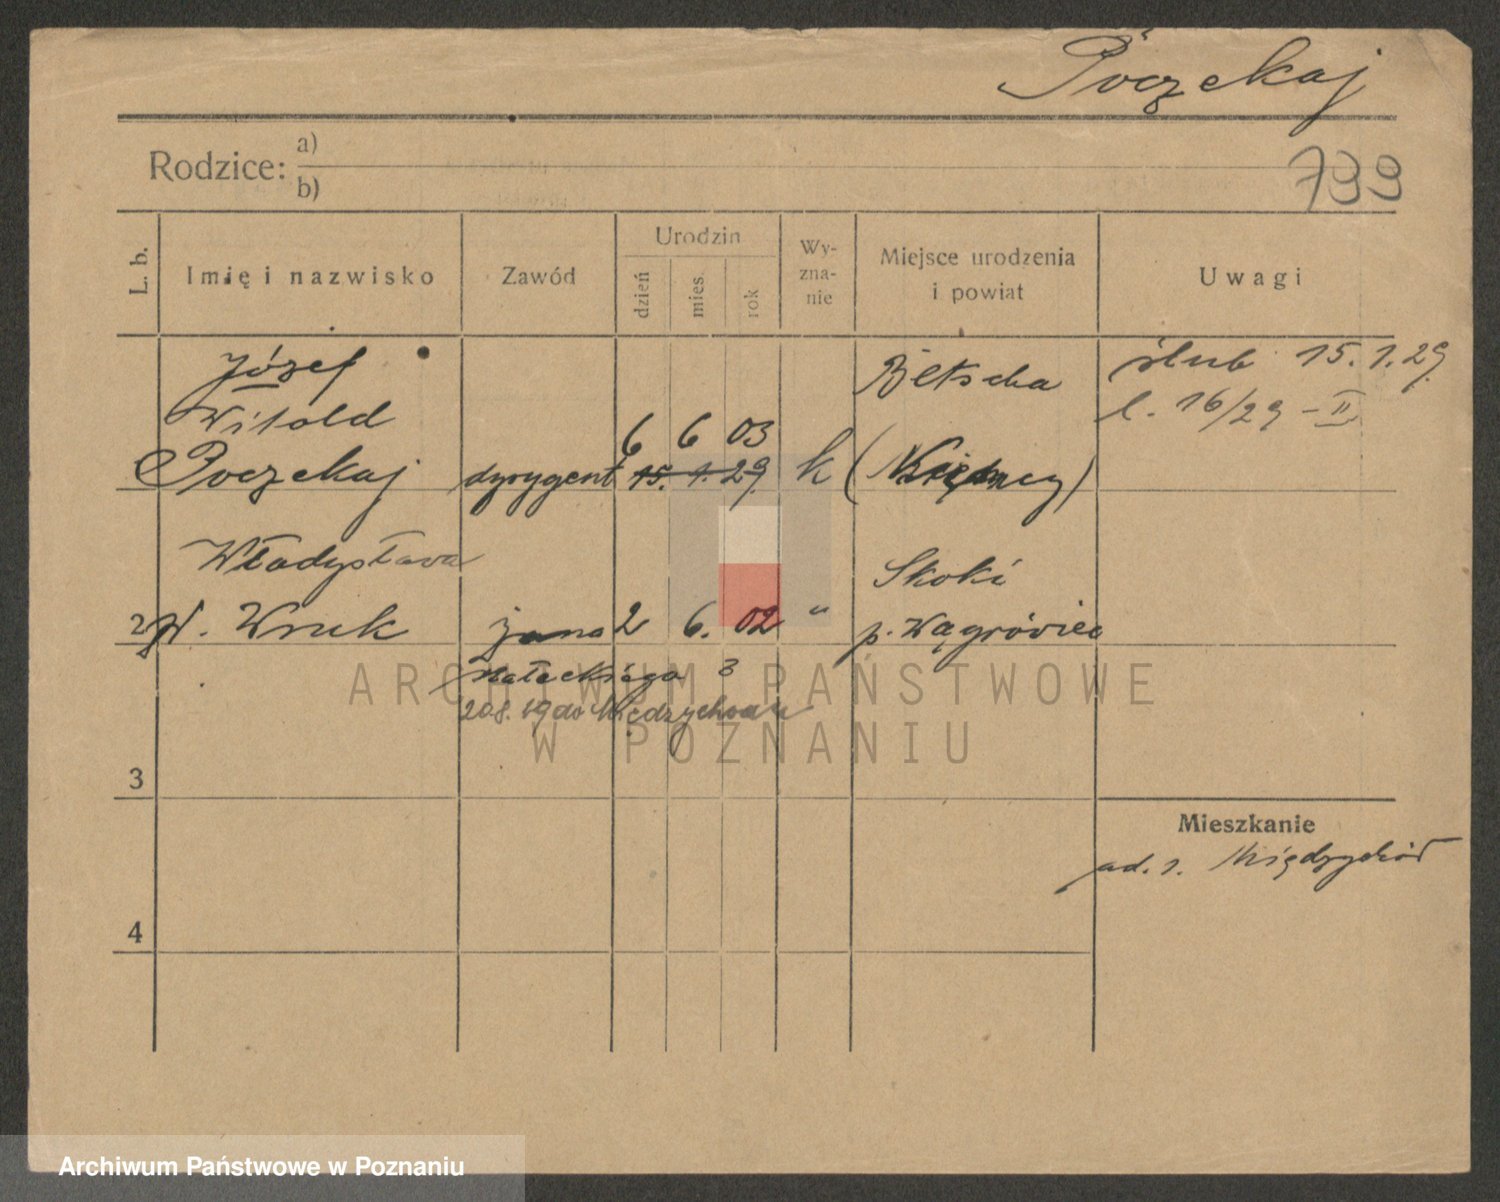 Poczekaj
Rodzice: a)
b)
799
L. b.
Imię i nazwisko
Zawód
Urodzin
dzień
mies.
rok
Wy-
zna-
nie
Miejsce urodzenia
i powiat
Uwagi
Józef
Witold
Poczekaj
dyrygent
6 6 03
15. 1. 29
k
Betscha
(Niemcy)
ślub 15.1.29.
l. 16/29 - II
2
Władysława
Wruk
żona
2 6. 02
"
Skoki
p. Wągrówiec
Małeckiego 3
do Międzychodu
3
4
Mieszkanie
ad. 1. Międzychód
ARCHIWUM PAŃSTWOWE
W POZNANIU
Archiwum Państwowe w Poznaniu